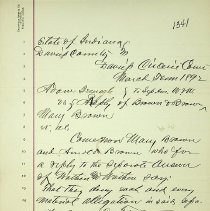 1341
State of Indiana
Daviess County SS
Daviess Circuit Court
March Term 1892
Adam
vs Reply of Brown & Brown
Mary Brown
et al.
Comes now Mary Brown
and Brown who for
a reply to the separate answer
of say:
That they deny each and every
material allegation in said